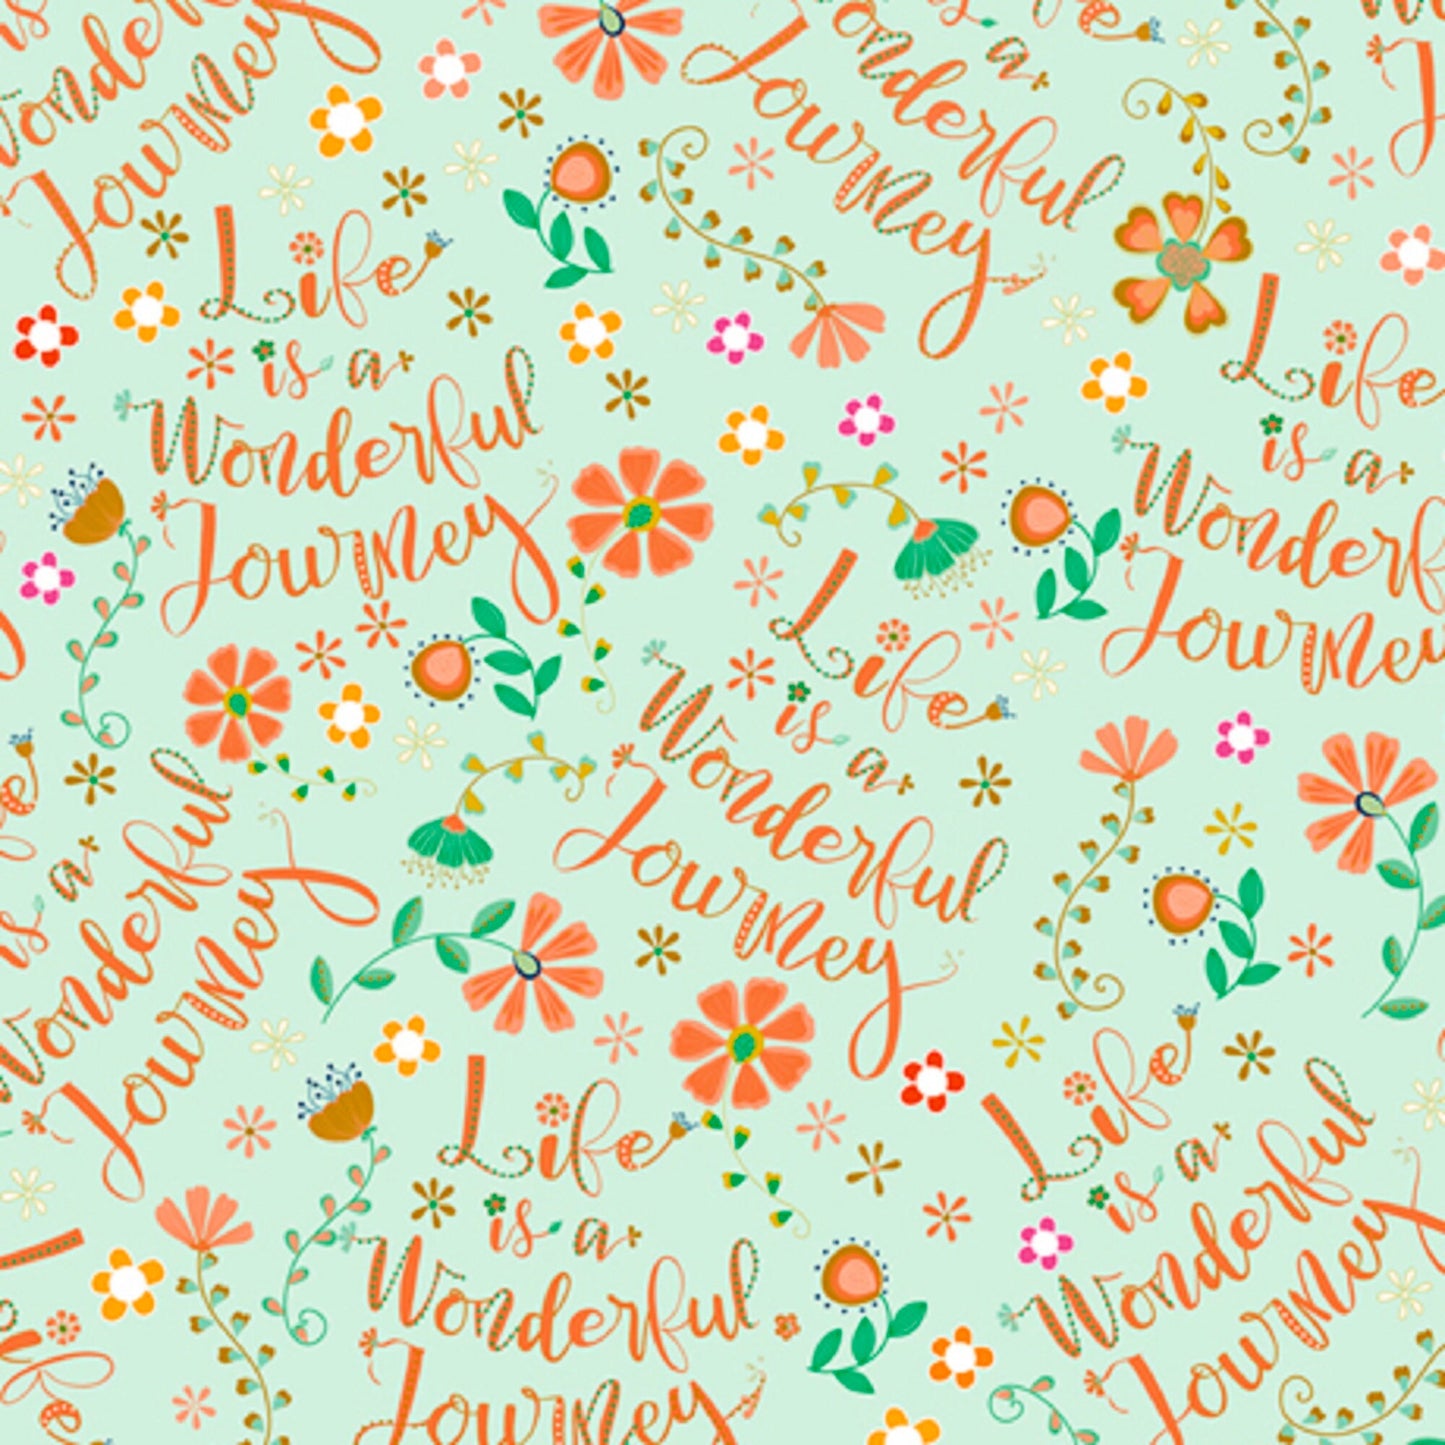 Wonderful
Journey
is a
Wonderful
Journey
Life
is a
Wonderful
Journey
Life
is a
Wonderful
Journey
Life
is a
Wonderful
Journey
is a
Wonderful
Journey
Life
is a
Wonderful
Journey
Life
is a
Wonderful
Journey